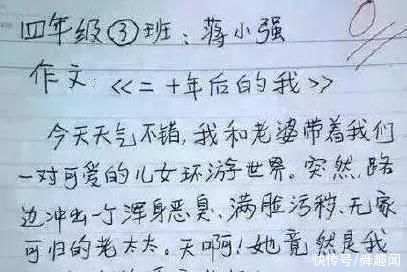 四年级③班：蒋小强
作文：<<二十年后的我>>
今天天气不错，我和老婆带着我们
一对可爱的儿女环游世界。突然，路
边冲出一个浑身恶臭、满脸污秽、无家
可归的老太太。天啊！她竟然是我
快传号/舞趣闻